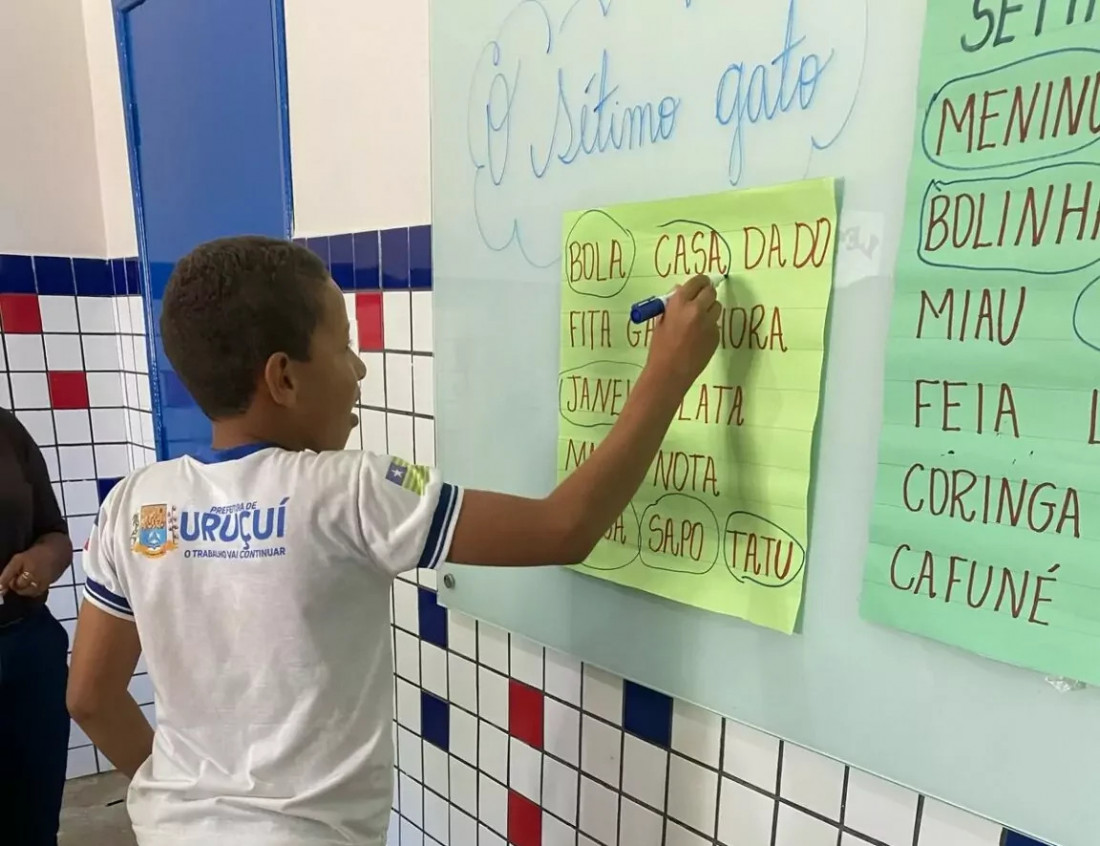 O Sétimo gato
BOLA CASA DADO
FITA HORA
LATA
NOTA
SAPO TATU
MIAU
FEIA
CORINGA
CAFUNÉ
PREFEITURA DE
URUÇUÍ
O TRABALHO VAI CONTINUAR